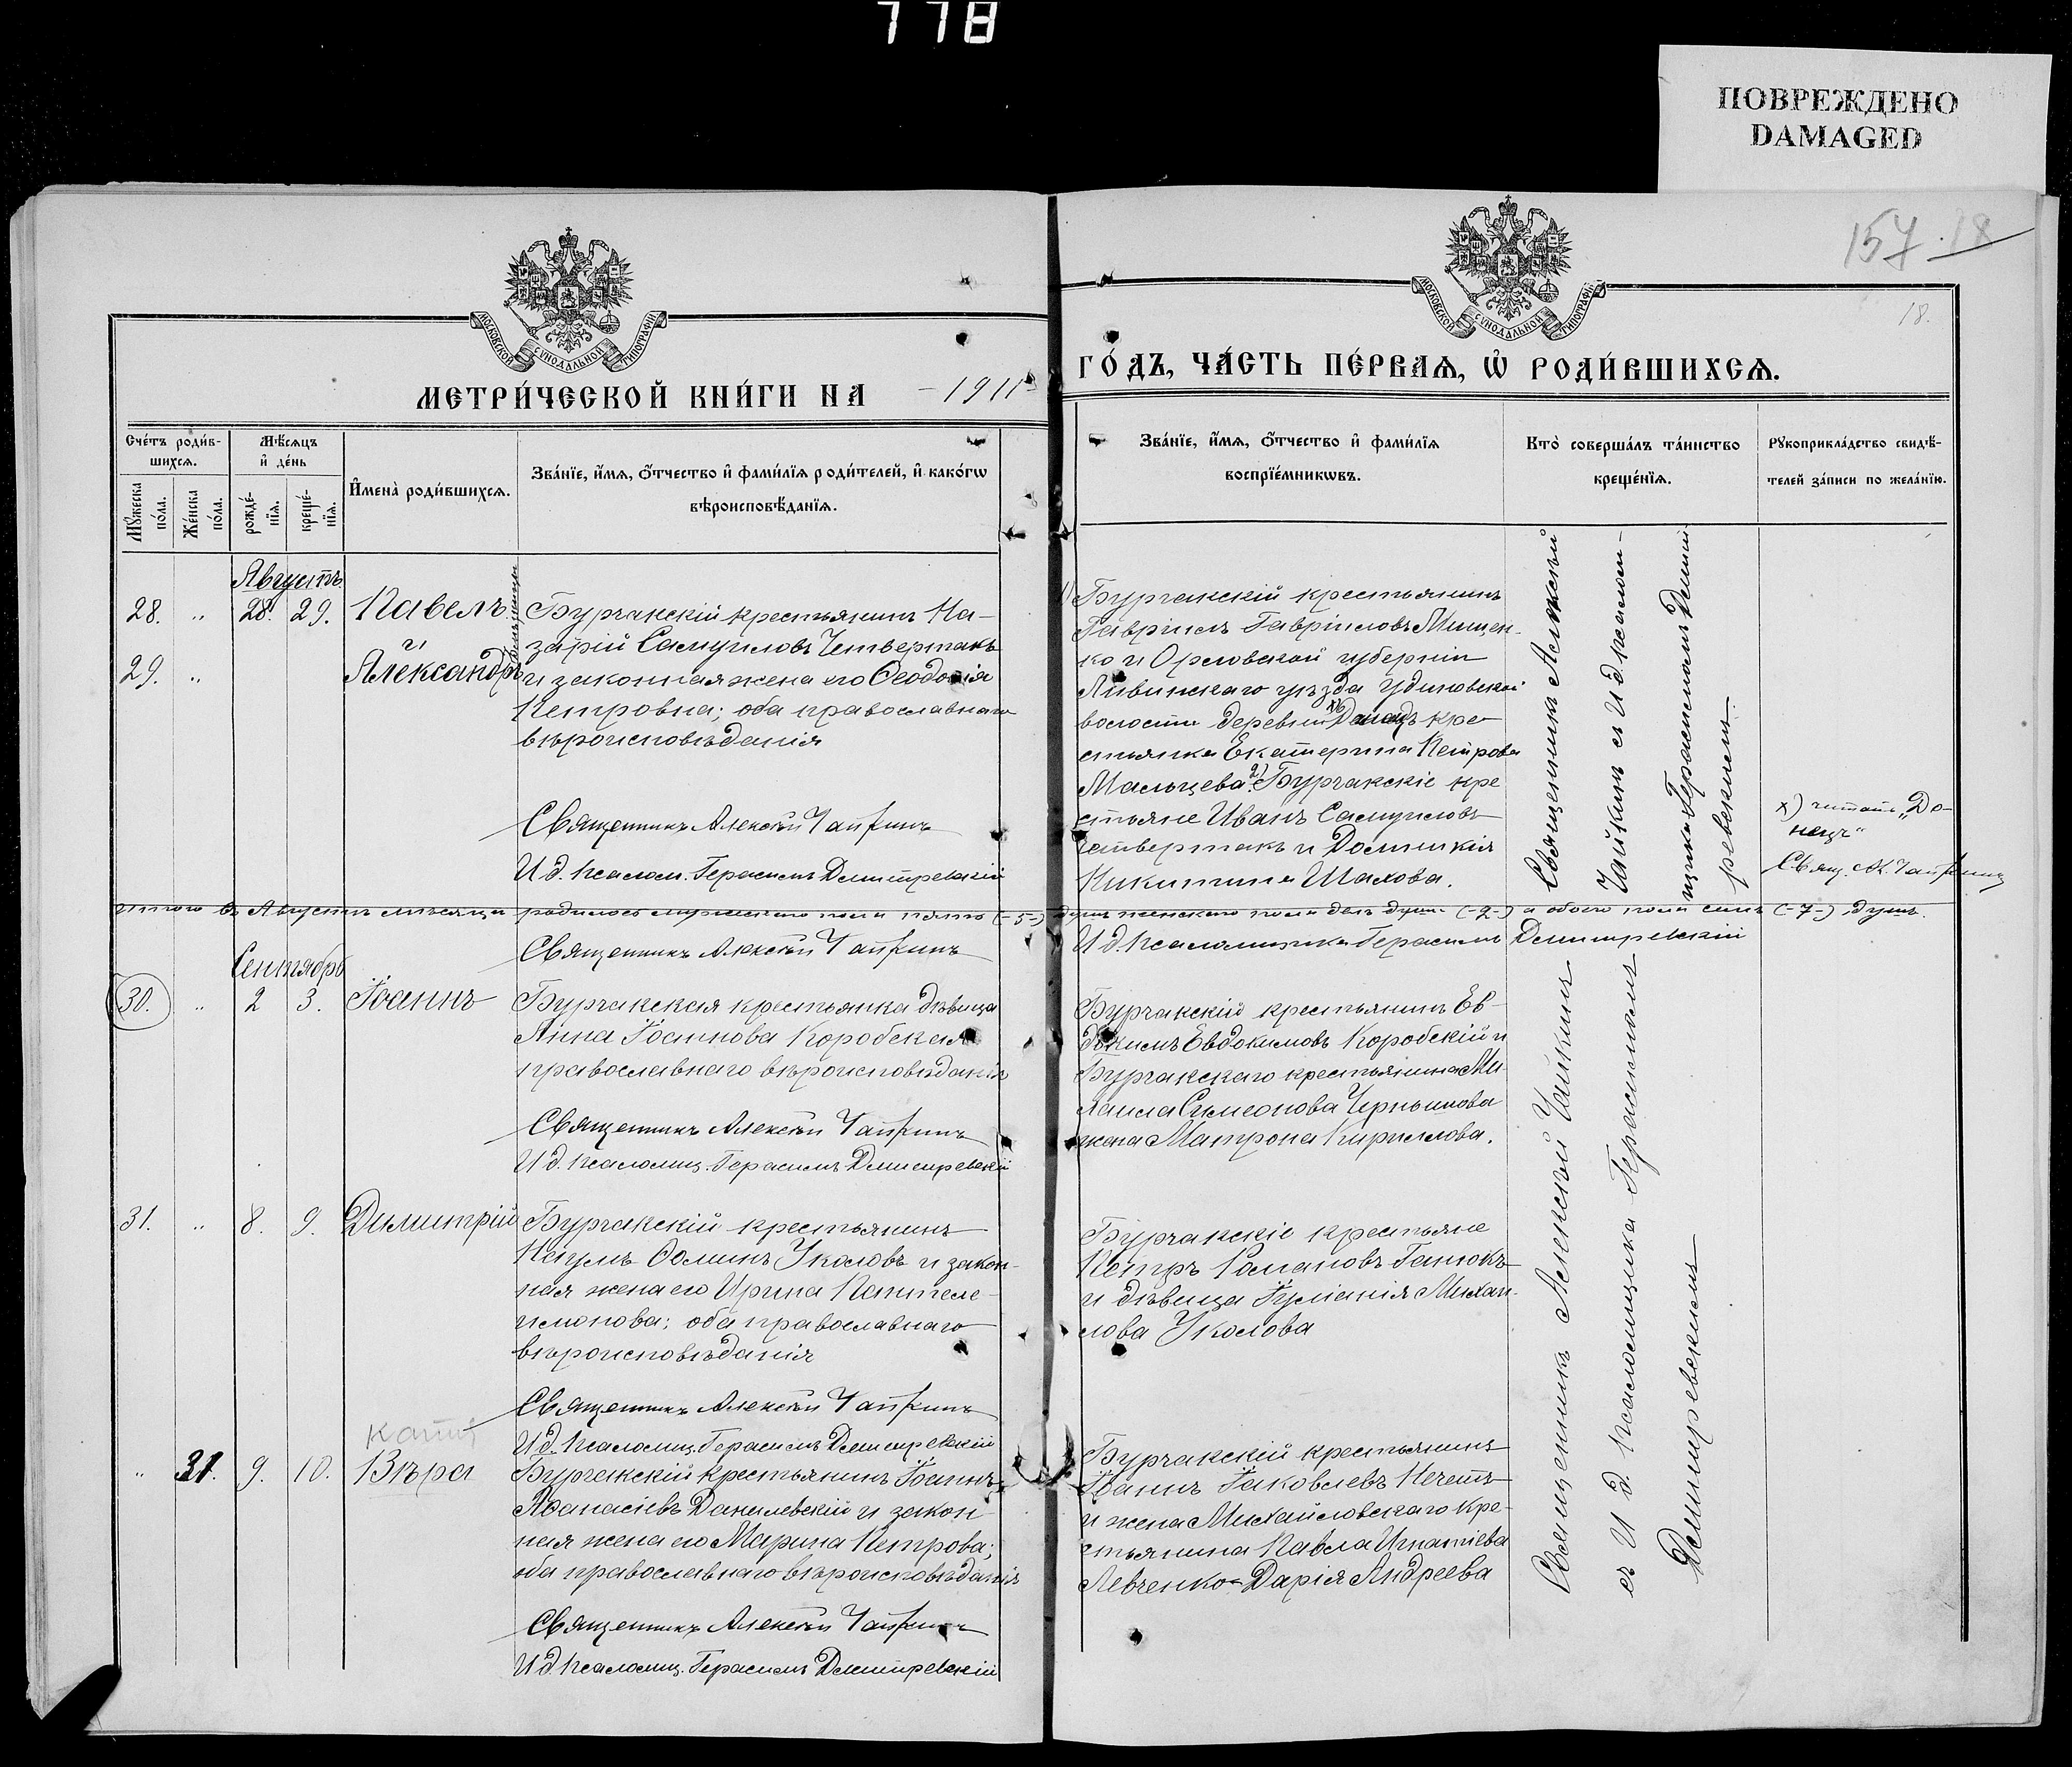 778
ПОВРЕЖДЕНО
DAMAGED
157. 18
18.
МОСКОВСКОЙ СѴНОДАЛЬНОЙ ТИПОГРАФІИ
МОСКОВСКОЙ СѴНОДАЛЬНОЙ ТИПОГРАФІИ
МЕТРИ́ЧЕСКОЙ КНИ́ГИ НА -1911-
ГО́ДЪ, ЧА́СТЬ ПЕ́РВАѦ, Ѡ҆ РОДИ́ВШИХСѦ.
Сче́тъ роди́в-
шихсѧ.
Мꙋ́жеска по́ла.
Же́нска по́ла.
Мѣ́сѧцъ
и҆ де́нь
рожде́-
нїѧ.
креще́-
нїѧ.
И҆мена̀ роди́вшихсѧ.
Зва́нїе, и҆́мѧ, ѻ҆́тчество и҆ фами́лїѧ роди́телей, и҆ како́гѡ
вѣроисповѣ́данїѧ.
Зва́нїе, и҆́мѧ, ѻ҆́тчество и҆ фами́лїѧ
воспрїе́мникѡвъ.
Кто̀ соверша́лъ та́инство
креще́нїѧ.
Рꙋкоприкла́дство свидѣ́-
телей за́писи по жела́нїю.
Августъ
28. " 28. 29. Павелъ
и
29. " Александръ
близнецы
Бурчакскій крестьянинъ На-
зарій Самуиловъ Четвертакъ
и законная жена его Ѳеодосія
Петровна; оба православнаго
вѣроисповѣданія
Священникъ Алексѣй Чайкинъ
И д. псалом. Герасимъ Димитревскій
1) Бурчакскій крестьянинъ
Гавріилъ Гавріиловъ Мищен-
ко и Орловской губерніи
Ливинскаго уѣзда Удиновской
волости деревни х) кре-
стьянка Екатерина Петрова
Мальцева. 2) Бурчакскіе кре
стьяне Иванъ Самуиловъ
Четвертакъ и Домникія
Никитина Шахова.
Священникъ Алексѣй
Чайкинъ съ И д псалом-
щика Герасимомъ Димит
ревскимъ
х) читать „До-
нецъ"
Свящ. Ал. Чайкинъ
Итого въ Августѣ мѣсяцѣ родилось мужескаго пола пять (-5-) душъ женскаго пола двѣ души (-2-) а обоего пола семь (-7-) душъ.
Священникъ Алексѣй Чайкинъ
И д. псаломщика Герасимъ Димитревскій
Сентябрь
30. " 2 3. Іоаннъ
Бурчакская крестьянка дѣвица
Анна Іоаннова Коробская
православнаго вѣроисповѣданія
Священникъ Алексѣй Чайкинъ
И д. псаломщ. Герасимъ Димитревскій
Бурчакскій крестьянинъ Ев-
докимъ Евдокимовъ Коробскій и
Бурчакскаго крестьянина Ми-
хаила Симеонова Чернышова
жена Матрона Кириллова.
31. " 8. 9. Димитрій
Бурчакскій крестьянинъ
Наумъ Ѳоминъ Уколовъ и закон-
ная жена его Ирина Пантеле-
имонова; оба православнаго
вѣроисповѣданія
Священникъ Алексѣй Чайкинъ
И д. псаломщ. Герасимъ Димитревскій
Бурчакскіе крестьяне
Петръ Романовъ Ганюкъ
и дѣвица Іуліанія Михаи-
лова Уколова
" 31. 9. 10. Вѣра
Бурчакскій крестьянинъ Іоаннъ
Аѳанасіевъ Данилевскій и закон-
ная жена его Марина Петрова;
оба православнаго вѣроисповѣданія
Священникъ Алексѣй Чайкинъ
И д. псаломщ. Герасимъ Димитревскій
Бурчакскій крестьянинъ
Іоаннъ Іаковлевъ Нечетъ
и жена Михайловскаго кре-
стьянина Павла Игнатіева
Левченко Дарія Андреева
Священникъ Алексѣй Чайкинъ
съ И д. псаломщика Герасимомъ
Димитревскимъ